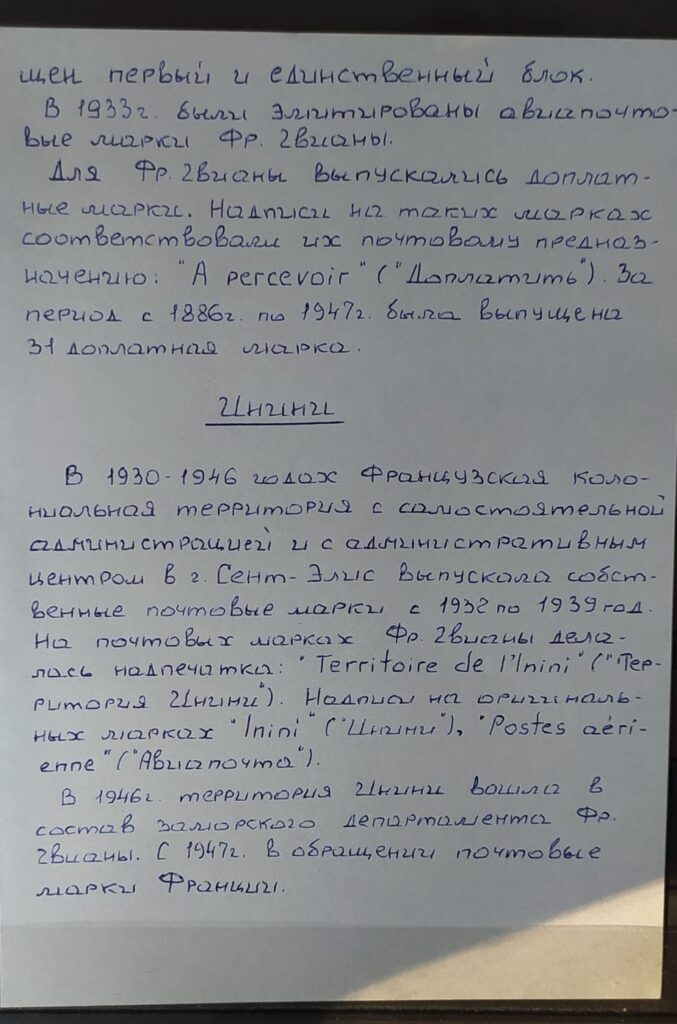 щен первый и единственный блок.
В 1933г. были эмитированы авиапочто-
вые марки Фр. Гвианы.
Для Фр. Гвианы выпускались доплат-
ные марки. Надписи на таких марках
соответствовали их почтовому предназ-
начению: "A percevoir" ("Доплатить"). За
период с 1886г. по 1947г. была выпущена
31 доплатная марка.
Инини
В 1930-1946 годах Французская коло-
ниальная территория с самостоятельной
администрацией и с административным
центром в г. Сент-Элис выпускала собст-
венные почтовые марки с 1932 по 1939 год.
На почтовых марках Фр. Гвианы дела-
лась надпечатка: "Territoire de l'Inini" ("Тер-
ритория Инини"). Надписи на оригиналь-
ных марках "Inini" ("Инини"), "Postes aéri-
enne" ("Авиапочта").
В 1946г. территория Инини вошла в
состав заморского департамента Фр.
Гвианы. С 1947г. в обращении почтовые
марки Франции.